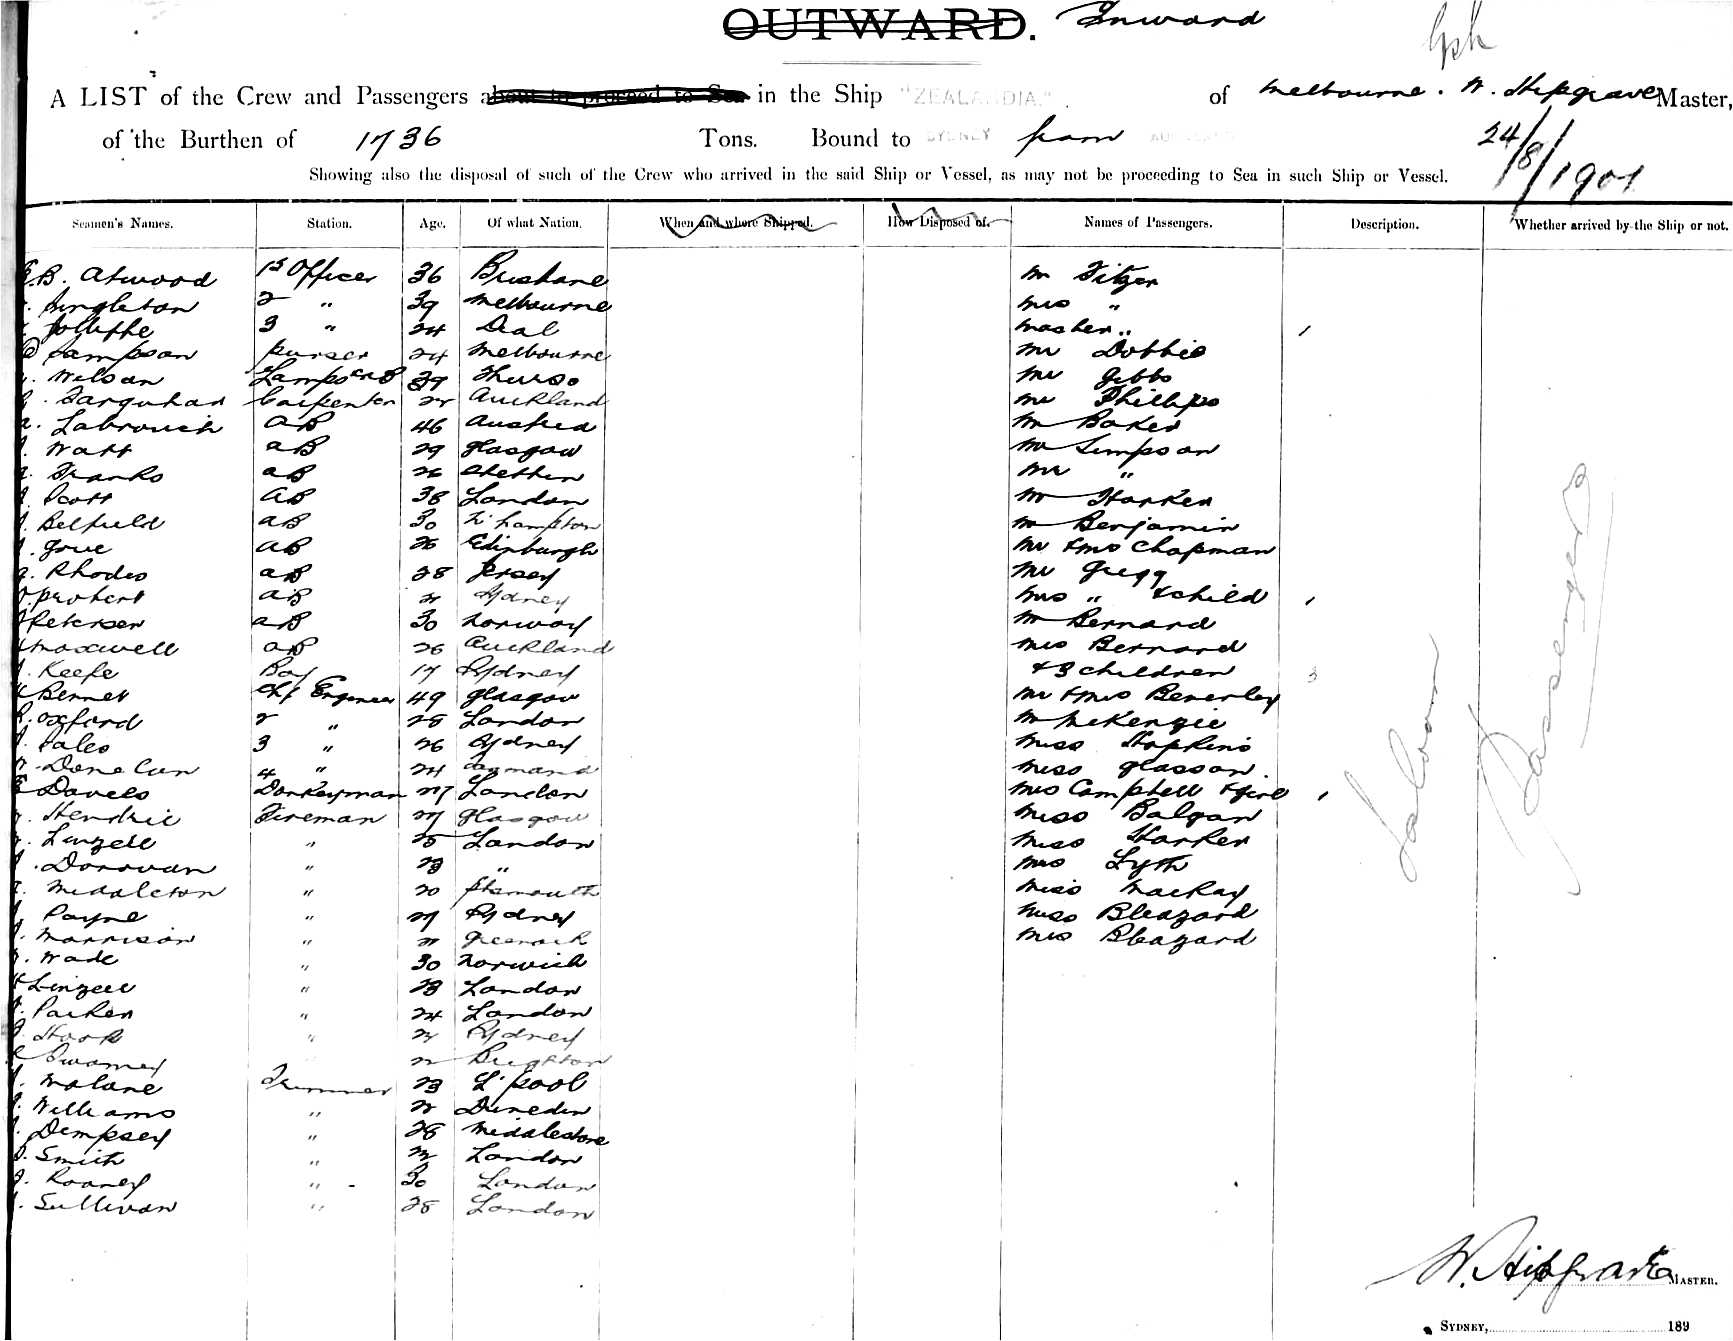 OUTWARD. Inward
A LIST of the Crew and Passengers about to proceed to Sea in the Ship "ZEALANDIA." of Melbourne. W. Hipgrave Master,
of the Burthen of 1736 Tons. Bound to SYDNEY from AUCKLAND
24/8/1901
Showing also the disposal of such of the Crew who arrived in the said Ship or Vessel, as may not be proceeding to Sea in such Ship or Vessel.
Seamen's Names. Station. Age. Of what Nation. When and where Shipped. How Disposed of. Names of Passengers. Description. Whether arrived by the Ship or not.
B. Atwood 1st Officer 36 Brisbane Mr Fitzer
Singleton 2 " 39 Melbourne Mrs "
Jolliffe 3 " 24 Deal Master " 1
Sampson Purser 24 Melbourne Mr Dobbie
Wilson Lamps &AB 39 Thurso Mr Gibbs
Farquhar Carpenter Auckland Mr Phillips
Labrouich AB 46 Austria Mr Baker
Watt AB 29 Glasgow Mr Simpson
Franks AB 26 Stettin Mr "
Scott AB 38 London Mr Harker
Belfield AB 30 hampton Mr Benjamin
AB 26 Edinburgh Mr & Mrs Chapman
Rhodes AB 28 Jersey Mr Gregg
Probert AB Sydney Mrs " & child 1
Petersen AB 30 Norway Mr Bernard
Maxwell AB 26 Auckland Mrs Bernard
Keefe Boy 17 Sydney & 3 children 3
Bennet Chf Engineer 49 Glasgow Mr & Mrs Beverley
Oxford 2 " 28 London Mr McKenzie
Sales 3 " 26 Sydney Miss Hopkins
Donelan 4 " 24 Miss Glasson.
Davies Donkeyman 27 London Mrs Campbell & girl 1
Hendrie Fireman 27 Glasgow Miss Balgan
Linzell " 25 London Miss Harker
Donovan " 23 " Mrs Lyth
Middleton " 20 Ptsmouth Miss Mackay
Payne " 27 Sydney Miss Bleazard
Morrison " Greenock Mrs Bleazard
Wade " 30 Norwich
Linzell " 23 London
Parker " 24 London
" Sydney
Brighton
Malone Trimmer 23 L'pool
Williams " Dunedin
Dempsey " 28
Smith " London
Rooney " 30 London
Sullivan " 28 London
Saloon
Passengers
W. Hipgrave MASTER.
SYDNEY, 189